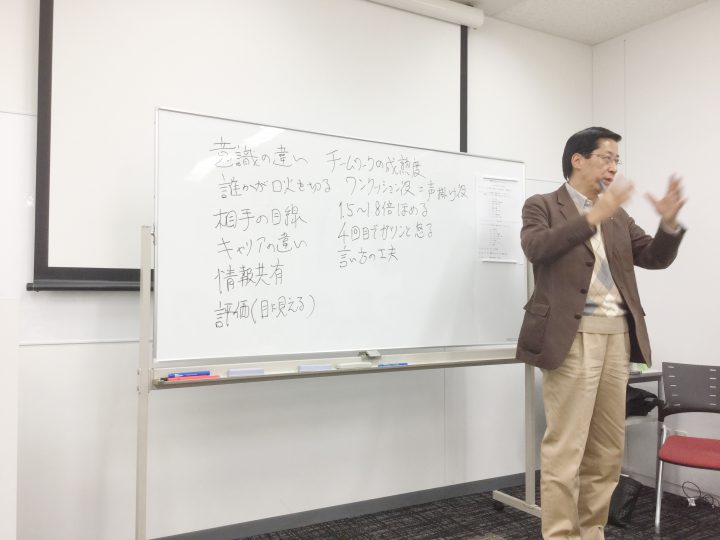 意識の違い
誰かが口火を切る
相手の目線
キャリアの違い
情報共有
評価(目に見える)
チームワークの成熟度
ワンクッション役=声掛け役
1.5〜1.8倍ほめる
4回目でガツンと怒る
言い方の工夫